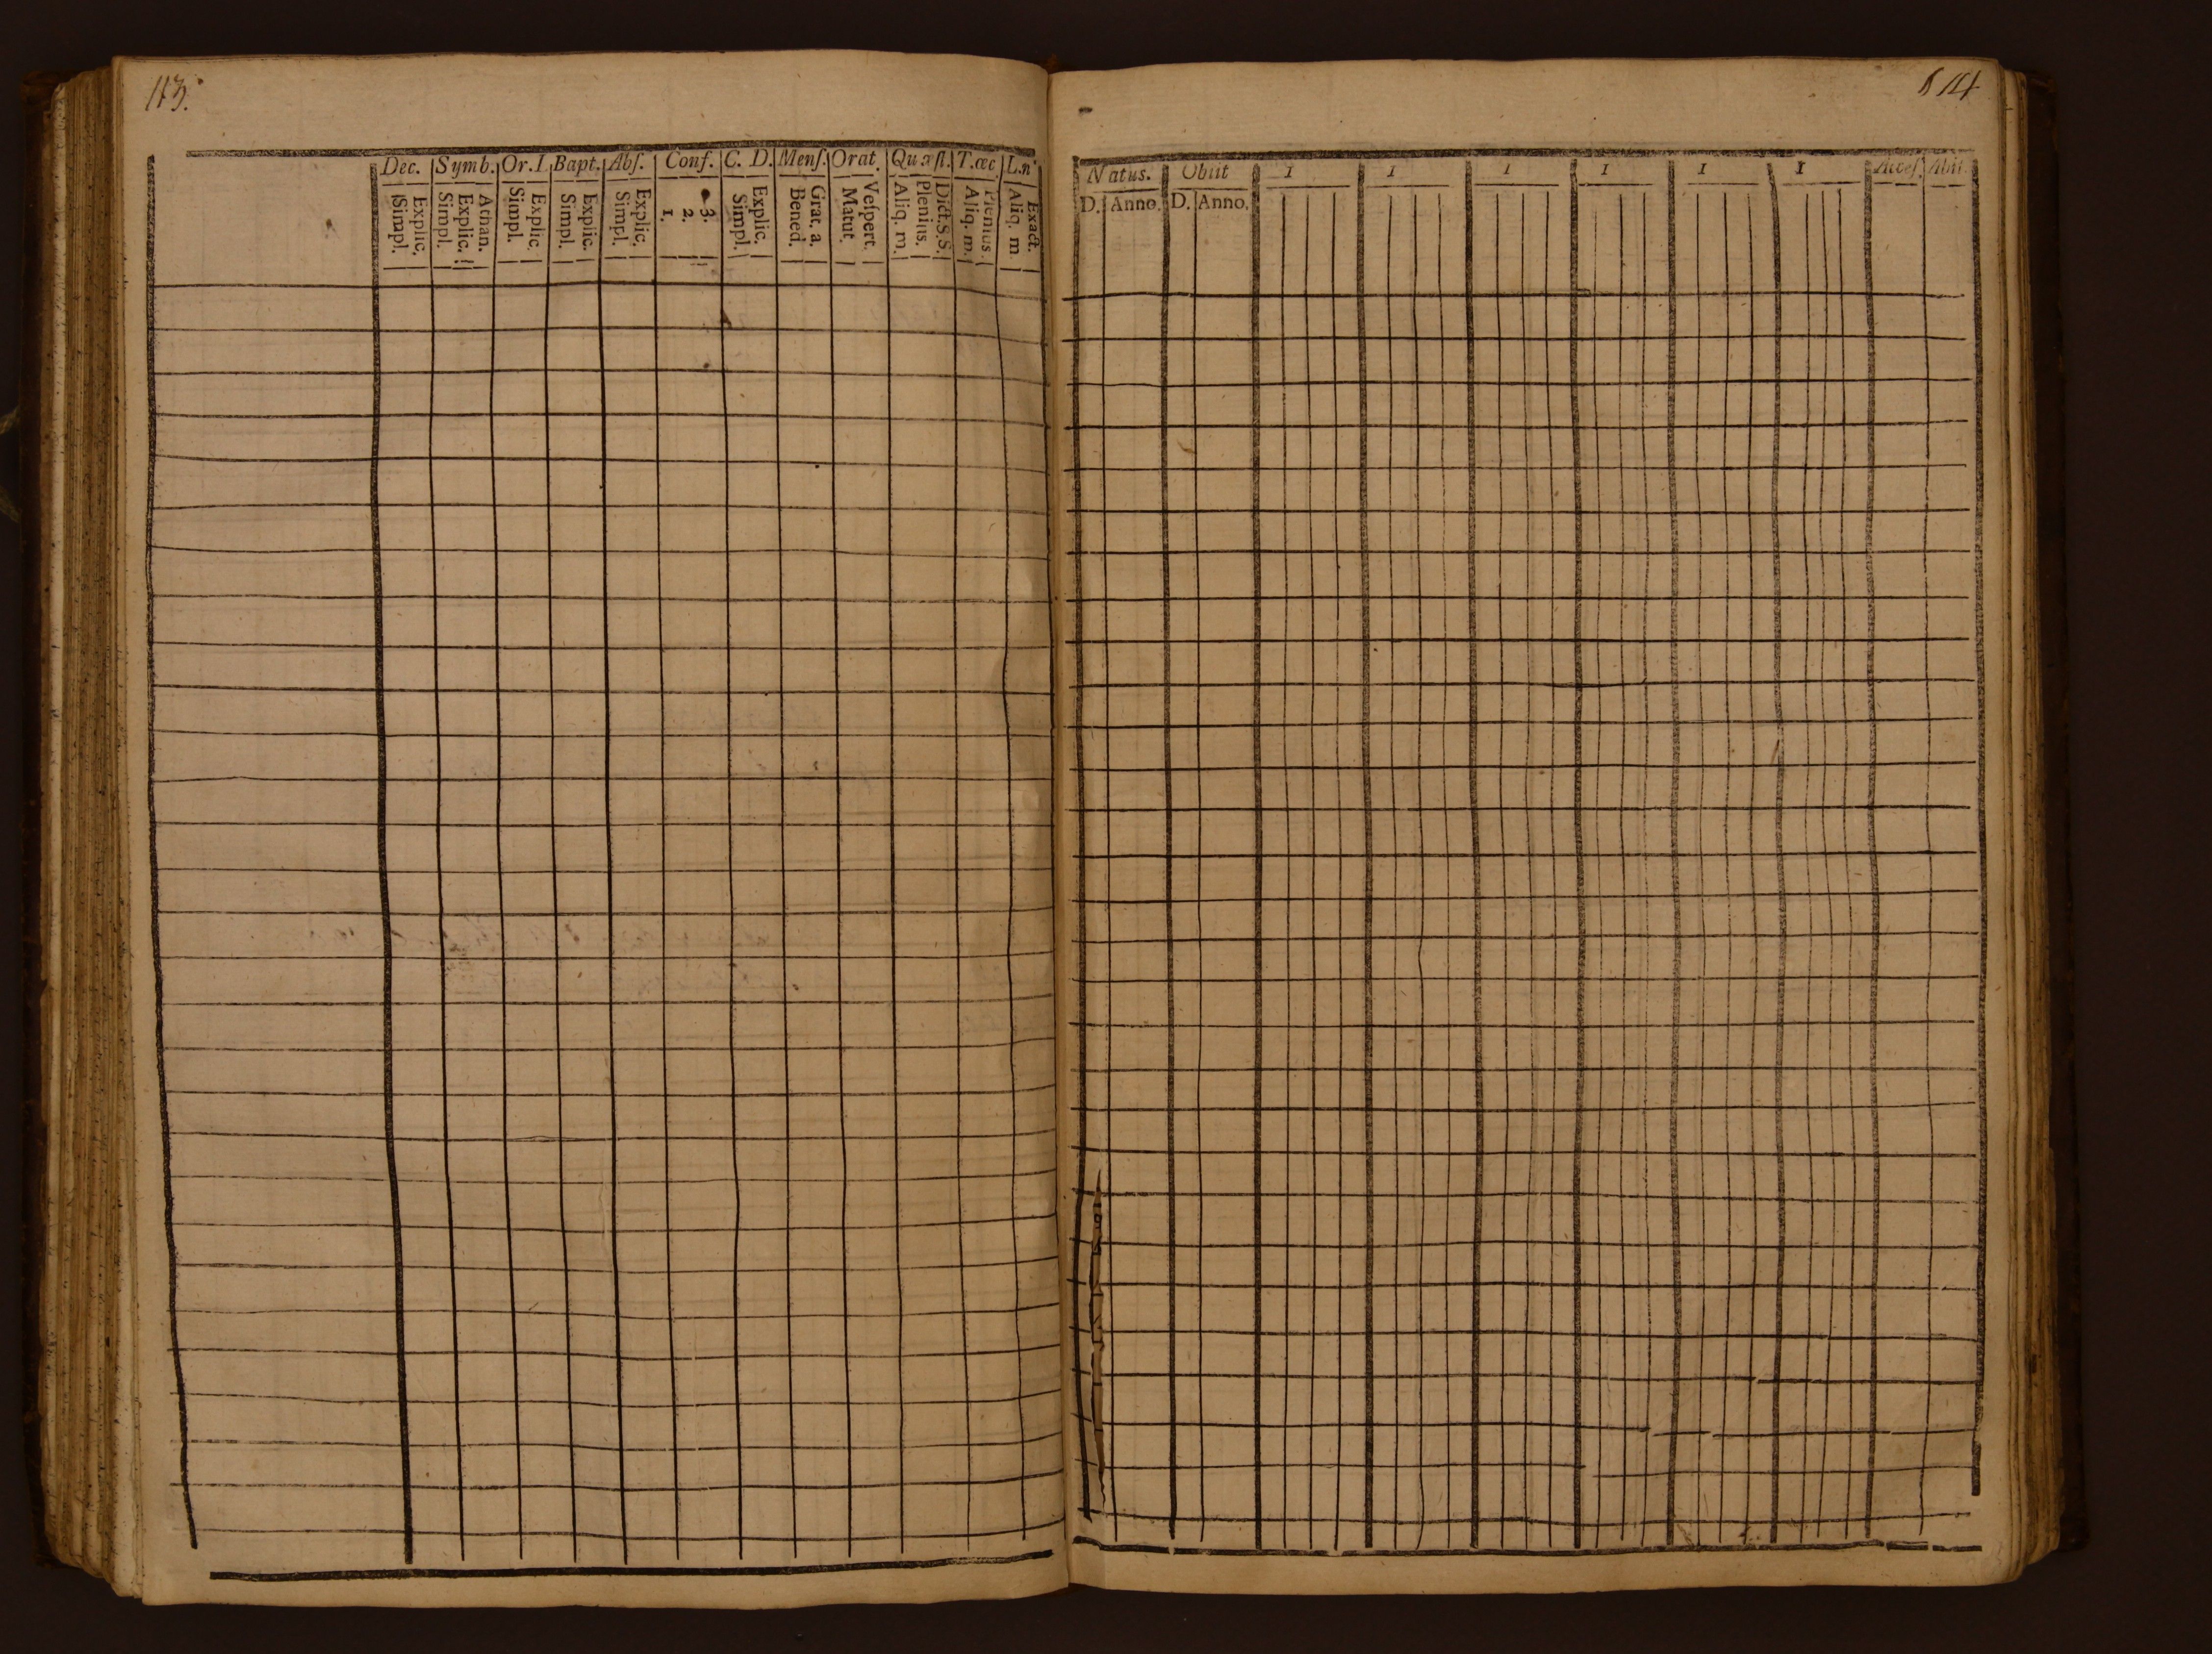 113.
Dec. Symb. Or.I. Bapt. Abſ. Conf. C. D. Menſ. Orat. Quæſt. T.œc L.n
Explic. Simpl.
Athan. Explic. Simpl.
Explic. Simpl.
Explic. Simpl.
Explic. Simpl.
3. 2. 1.
Explic. Simpl.
Grat. a. Bened.
Veſpert. Matut.
Dict.S.S. Plenius. Aliq. m.
Plenius. Aliq. m.
Exact. Aliq. m
114
Natus. Obiit I I I I I I Acceſ. Abiit
D. Anno. D. Anno.